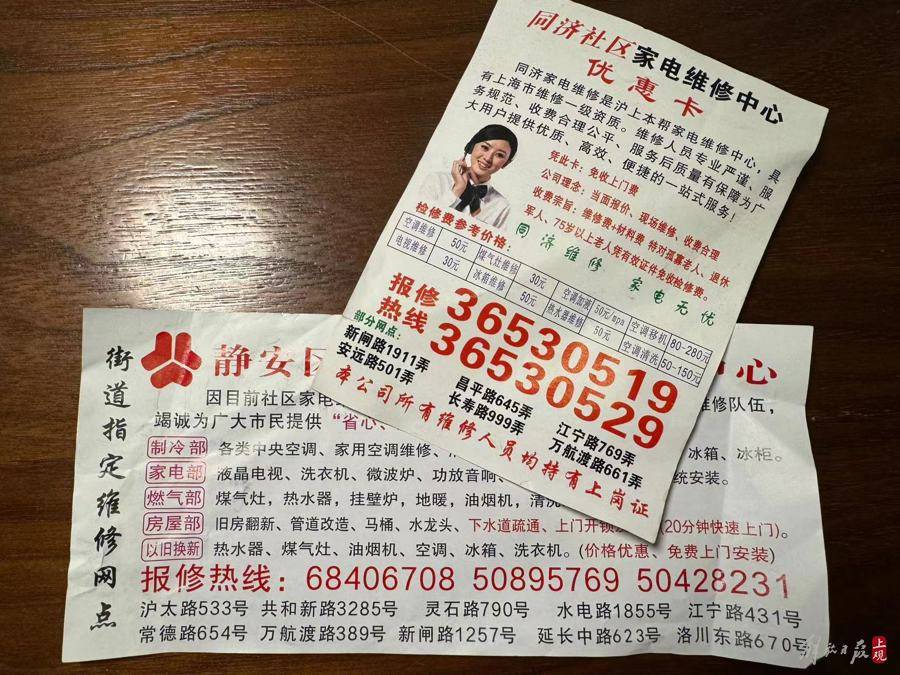 同济社区家电维修中心
优惠卡
同济家电维修是沪上本帮家电维修中心，具
有上海市维修一级资质。维修人员专业严谨、服
务规范、收费合理公平、服务后质量有保障为广
大用户提供优质、高效、便捷的一站式服务！
凭此卡：免收上门费
公司理念：当面报价、现场维修、收费合理
收费宗旨：维修费+材料费 特对孤寡老人、退休
军人、75岁以上老人凭有效证件免收检修费。
同济维修 家电无忧
检修费参考价格：
空调维修 50元 煤气灶维修 30元 空调加测 50元/mpa 空调移机 80-280元
电视维修 30元 冰箱维修 50元 热水器维修 50元 空调清洗 50-150元
报修热线
36530519
36530529
部分网点：
新闸路1911弄 昌平路645弄 江宁路769弄
安远路501弄 长寿路999弄 万航渡路661弄
本公司所有维修人员均持有上岗证
街道指定维修网点
静安区 中心
因目前社区家电 维修队伍，
竭诚为广大市民提供“省心、
制冷部 各类中央空调、家用空调维修、 冰箱、冰柜。
家电部 液晶电视、洗衣机、微波炉、功放音响 统安装。
燃气部 煤气灶，热水器，挂壁炉，地暖，油烟机，清洗
房屋部 旧房翻新、管道改造、马桶、水龙头、下水道疏通、上门开锁 (20分钟快速上门)。
以旧换新 热水器、煤气灶、油烟机、空调、冰箱、洗衣机。(价格优惠、免费上门安装)
报修热线：68406708 50895769 50428231
沪太路533号 共和新路3285号 灵石路790号 水电路1855号 江宁路431号
常德路654号 万航渡路389号 新闸路1257号 延长中路623号 洛川东路670号
解放日报 上观